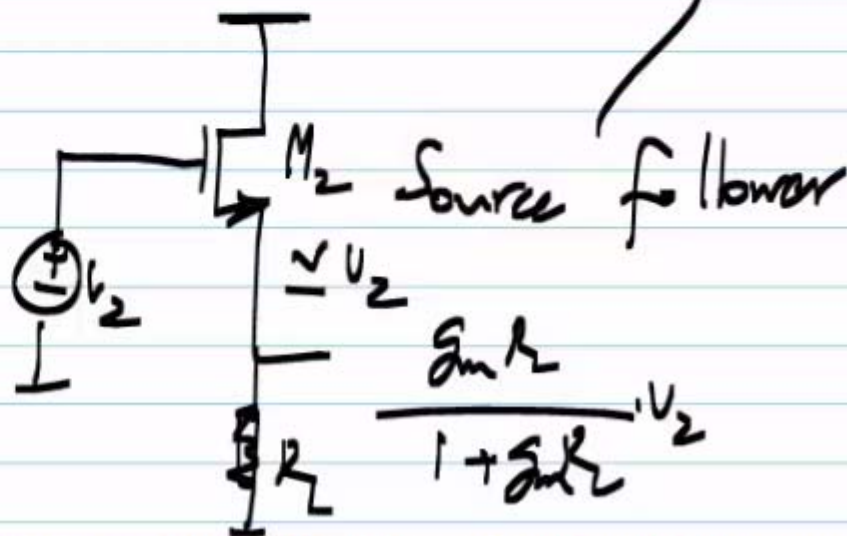 M₂ Source follower
+
-
V₂
≃ V₂
g_m R_L
1 + g_m R_L
· V₂
R_L